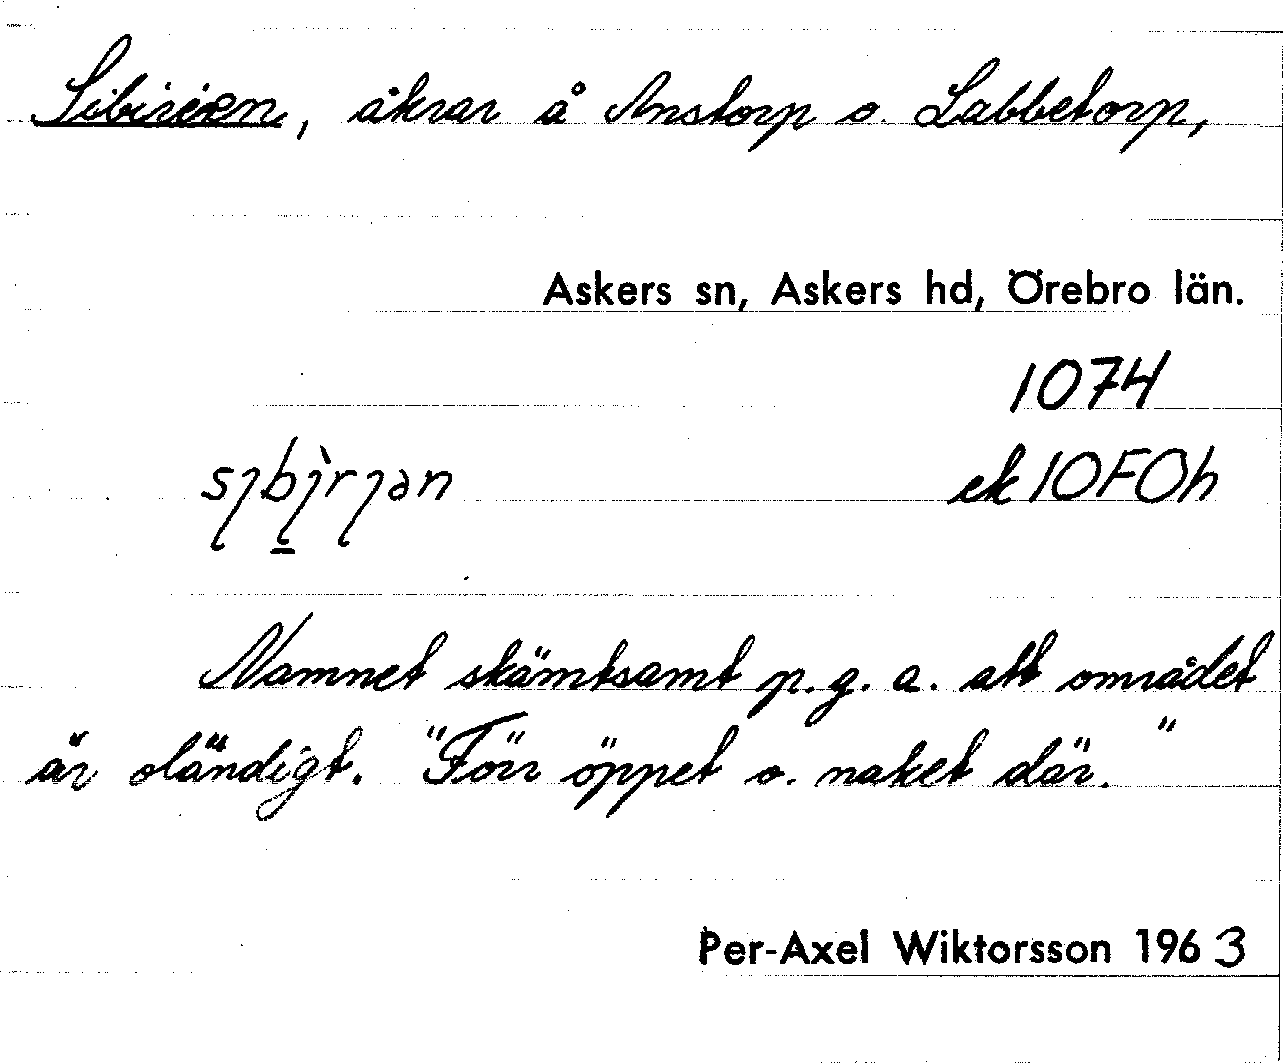 Sibirien, åkrar å Anstorp o. Labbetorp,
Askers sn, Askers hd, Örebro län.
1074
ek 10F0h
Namnet skämtsamt p.g.a. att området
är oländigt. "Förr öppet o. naket där."
Per-Axel Wiktorsson 1963